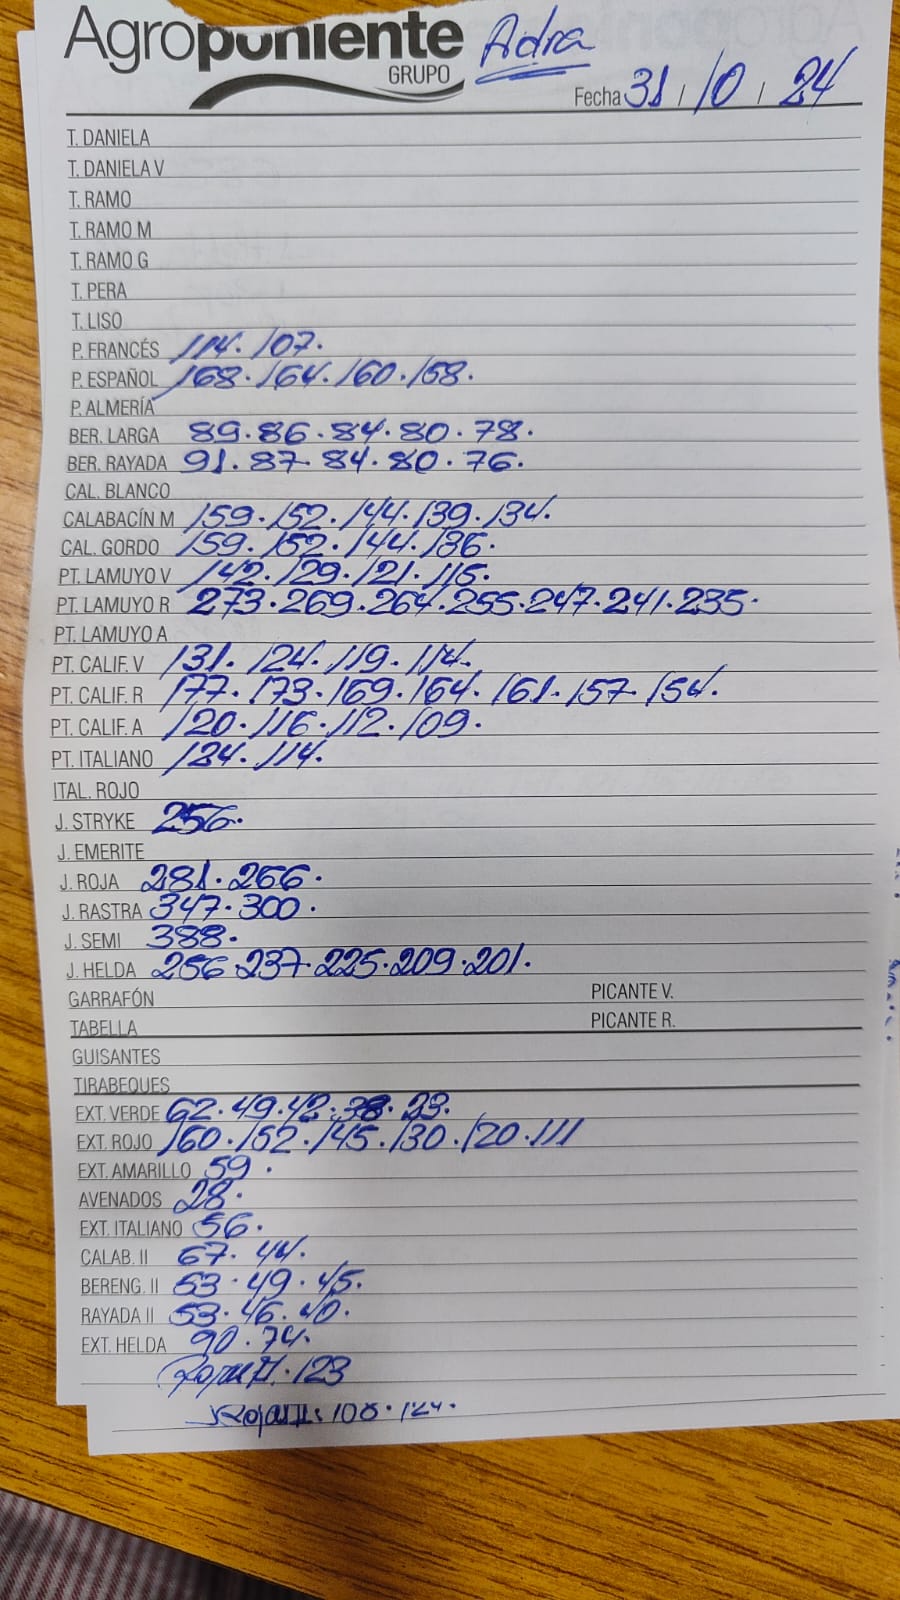 Agroponiente Adra
GRUPO
Fecha 31 / 10 / 24
T. DANIELA
T. DANIELA V
T. RAMO
T. RAMO M
T. RAMO G
T. PERA
T. LISO
P. FRANCÉS 114. 107.
P. ESPAÑOL 168. 164. 160. 158.
P. ALMERÍA
BER. LARGA 89. 86. 84. 80. 78.
BER. RAYADA 91. 87. 84. 80. 76.
CAL. BLANCO
CALABACÍN M 159. 152. 144. 139. 134.
CAL. GORDO 159. 152. 144. 136.
PT. LAMUYO V 142. 129. 121. 115.
PT. LAMUYO R 273. 269. 264. 255. 247. 241. 235.
PT. LAMUYO A
PT. CALIF. V 131. 124. 119. 114.
PT. CALIF. R 177. 173. 169. 164. 161. 157. 154.
PT. CALIF. A 120. 116. 112. 109.
PT. ITALIANO 124. 114.
ITAL. ROJO
J. STRYKE 256.
J. EMERITE
J. ROJA 281. 266.
J. RASTRA 347. 300.
J. SEMI 388.
J. HELDA 256. 237. 225. 209. 201.
GARRAFÓN PICANTE V.
TABELLA PICANTE R.
GUISANTES
TIRABEQUES
EXT. VERDE 62. 49. 42. 38. 23.
EXT. ROJO 160. 152. 145. 130. 120. 111
EXT. AMARILLO 59.
AVENADOS 28.
EXT. ITALIANO 56.
CALAB. II 67. 44.
BERENG. II 53. 49. 45.
RAYADA II 53. 46. 40.
EXT. HELDA 90. 74.
Roja II. 123